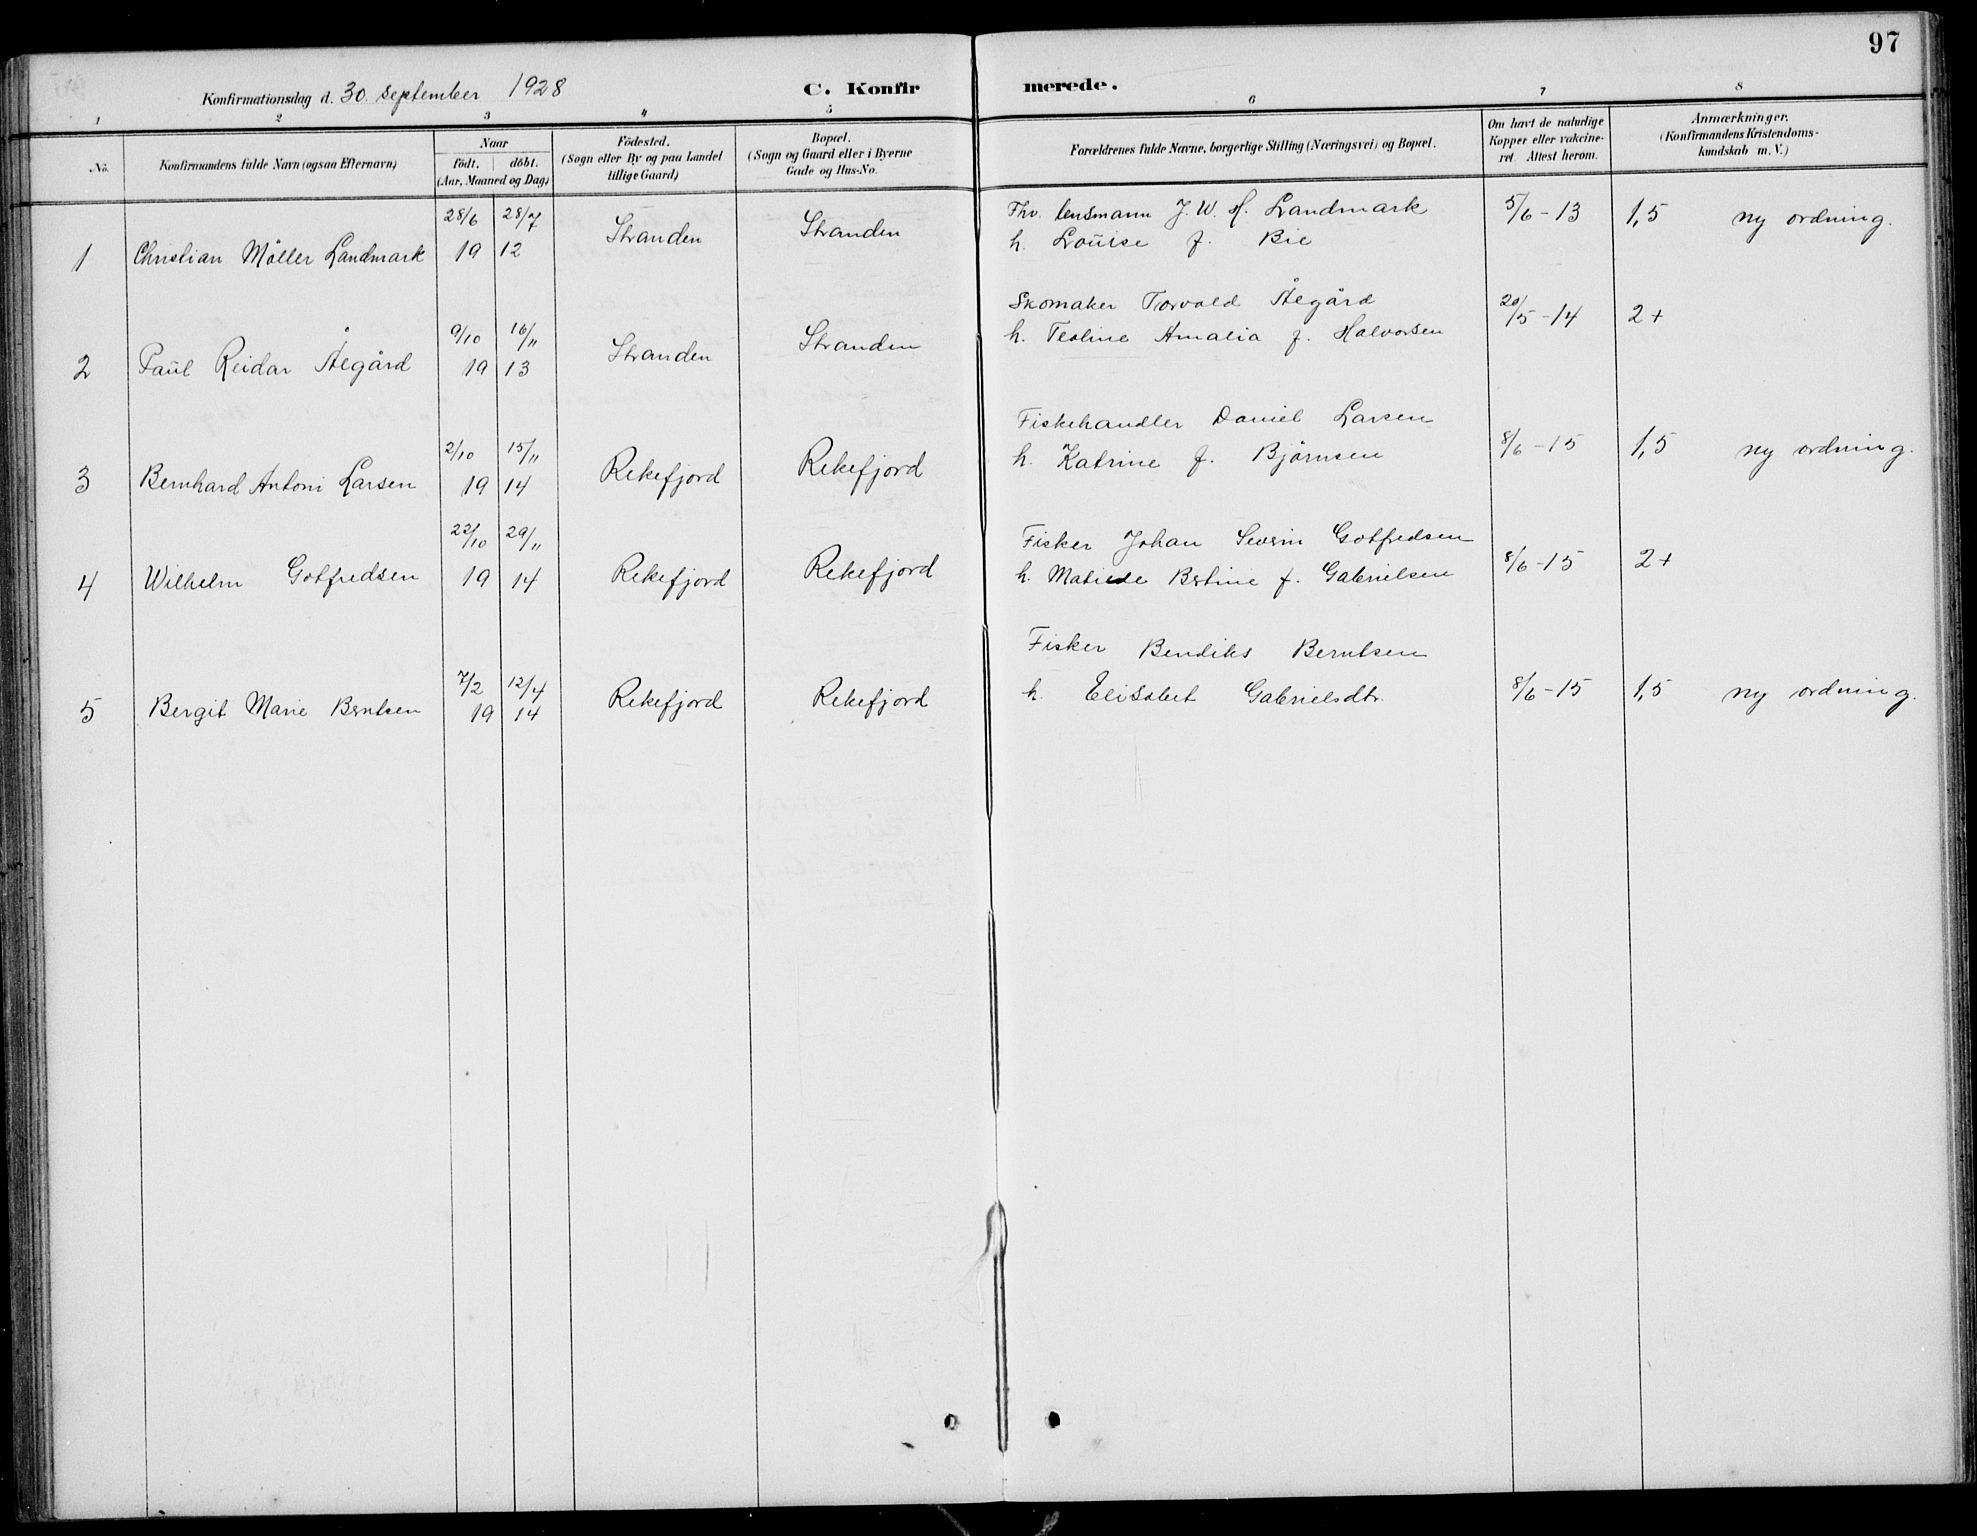 97
Konfirmationsdag d. 30. september 1928
C. Konfirmerede.
1 2 3 4 5 6 7 8
No.
Konfirmandens fulde Navn (ogsaa Efternavn)
Naar
födt. | döbt.
(Aar, Maaned og Dag)
Födested.
(Sogn eller By og paa Landet
tillige Gaard)
Bopæl.
(Sogn og Gaard eller i Byerne
Gade og Hus-No.
Forældrenes fulde Navne, borgerlige Stilling (Næringsvei) og Bopæl.
Om havt de naturlige
Kopper eller vakcine-
ret. Attest herom.
Anmærkninger.
(Konfirmandens Kristendoms-
kundskab m. V.)
28/6 28/7 Stranden Stranden Fhv. lensmann J. W. H. Landmark 5/6-13 1,5 ny ordning.
1 Christian Möller Landmark 19 12 h. Louise f. Bie
9/10 16/11 Stranden Stranden Skomaker Torvald Ålgård 20/5-14 2+
2 Paul Reidar Ålgård 19 13 h. Teoline Amalia f. Halvorsen
2/10 15/11 Rekefjord Rekefjord Fiskehandler Daniel Larsen 8/6-15 1,5 ny ordning.
3 Bernhard Antoni Larsen 19 14 h. Katrine f. Bjørnsen
22/10 29/11 Rekefjord Rekefjord Fisker Johan Severin Gotfredsen 8/6-15 2+
4 Wilhelm Gotfredsen 19 14 h. Matilde Bertine f. Gabrielsen
7/2 12/4 Rekefjord Rekefjord Fisker Bendiks Berntsen 8/6-15 1,5 ny ordning.
5 Bergit Marie Berntsen 19 14 h. Elisabet Gabrielsdtr.